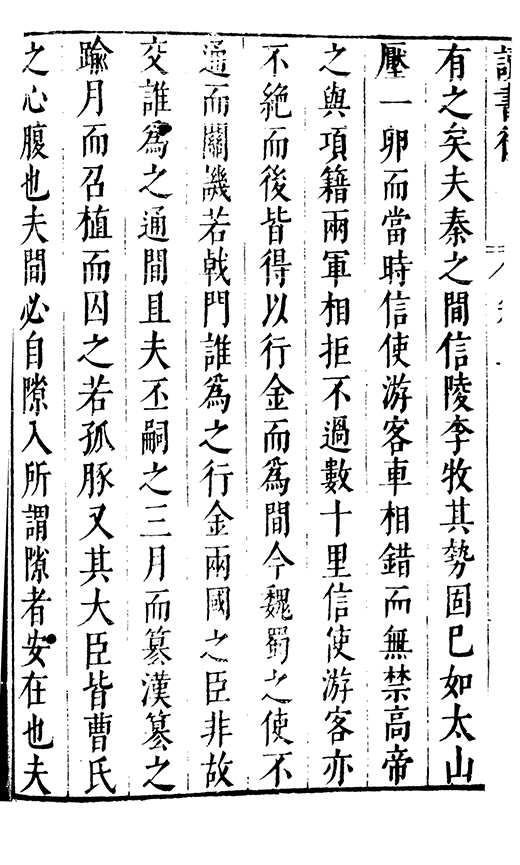 讀書後
有之矣夫秦之間信陵李牧其勢固已如太山
壓一卵而當時信使游客車相錯而無禁高帝
之與項籍兩軍相拒不過數十里信使游客亦
不絶而後皆得以行金而爲間今魏蜀之使不
通而關譏若戟門誰爲之行金兩國之臣非故
交誰爲之通間且夫丕嗣之三月而簒漢簒之
踰月而召植而囚之若孤豚又其大臣皆曹氏
之心腹也夫間必自隙入所謂隙者安在也夫